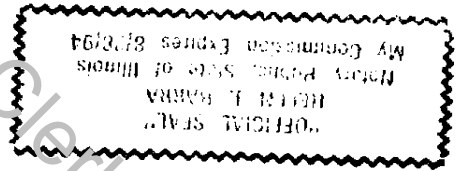 "OFFICIAL SEAL"
HELEN L. BARRA
Notary Public, State of Illinois
My Commission Expires 8/26/94
Clerk